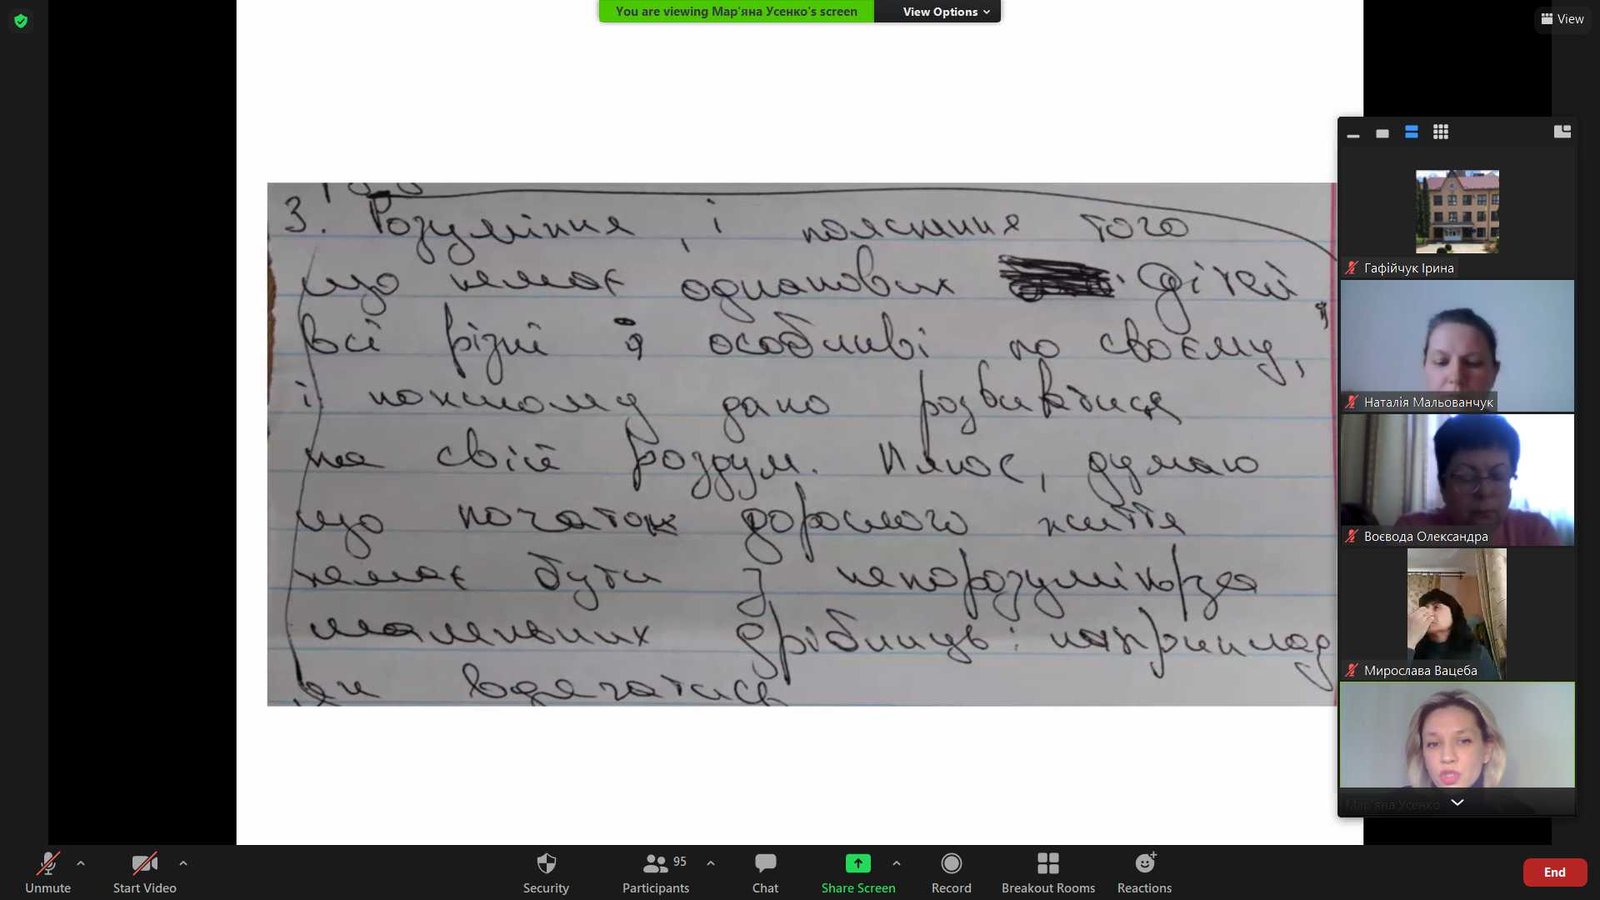 You are viewing Мар'яна Усенко's screen
View Options
View
3. Розуміння, і пояснння того
що немає однакових дітей,
всі різні й особливі по своєму,
і кожному дано розвиватися
на свій роздум. Плюс, думаю
що початок дорослого життя
немає бути з непорозумінь/за
маленьких дрібниць: наприклад
як вдягатись
Гафійчук Ірина
Наталія Мальованчук
Воєвода Олександра
Мирослава Вацеба
Мар'яна Усенко
Unmute
Start Video
Security
Participants
95
Chat
Share Screen
Record
Breakout Rooms
Reactions
End